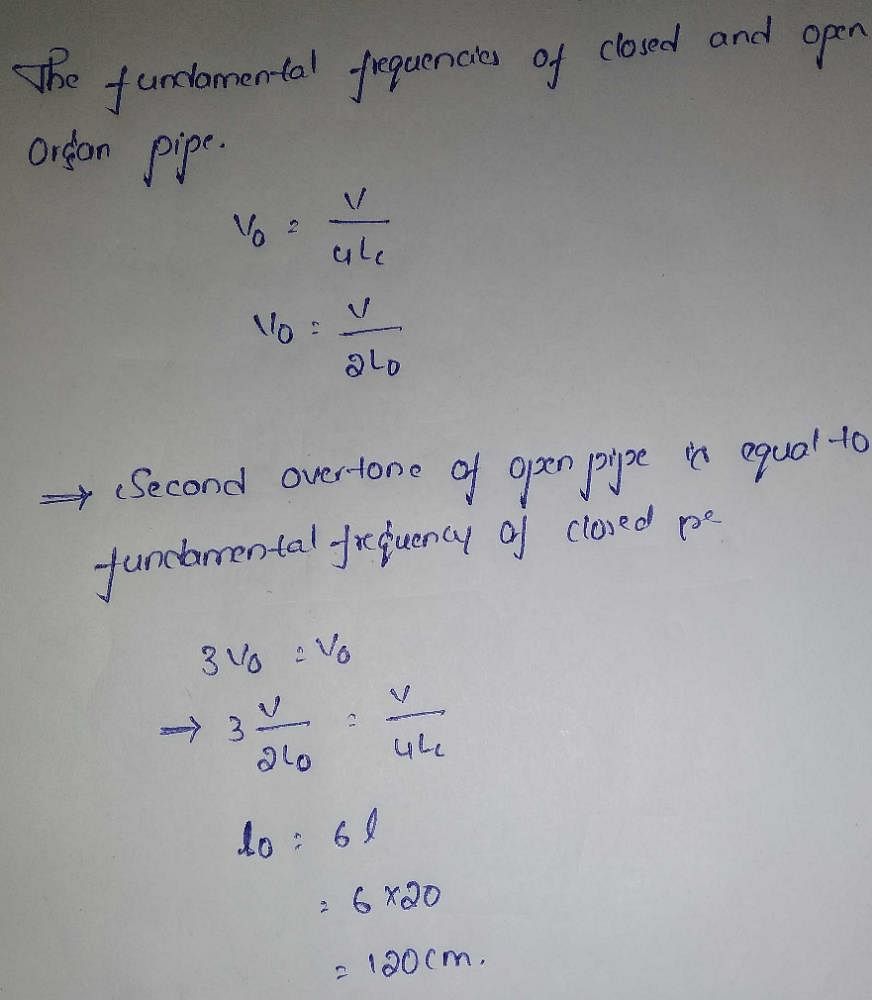 The fundamental frequencies of closed and open
Organ pipe.
V₀ = V / 4Lc
V₀ = V / 2L₀
⇒ Second overtone of open pipe is equal to
fundamental frequency of closed pe
3V₀ = V₀
⇒ 3 V / 2L₀ = V / 4Lc
l₀ = 6l
= 6×20
= 120cm.